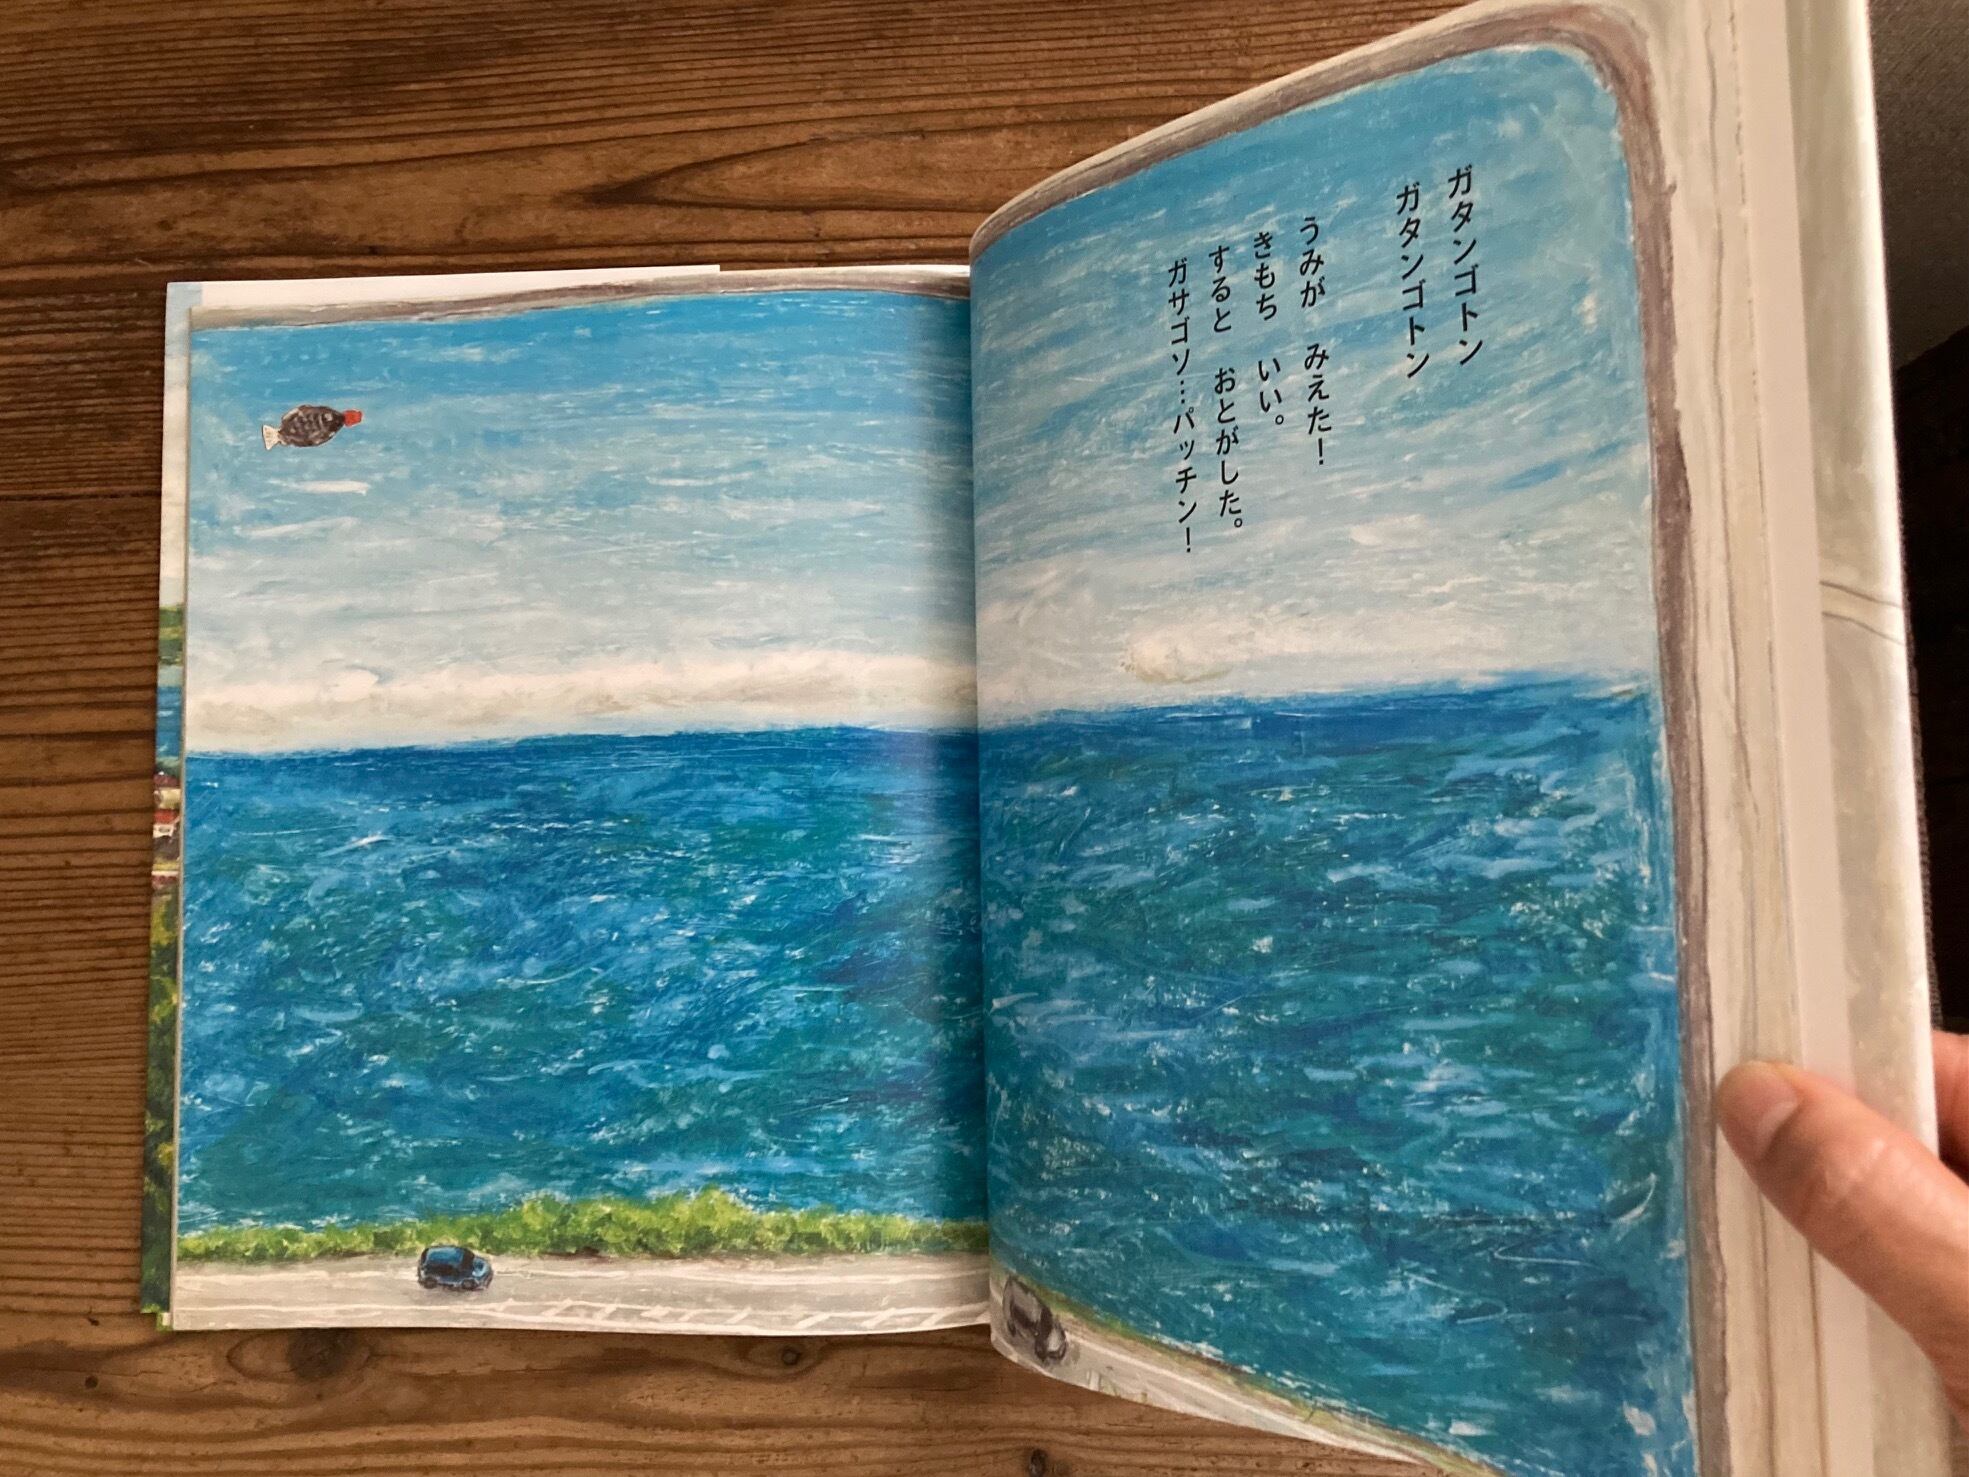 ガタンゴトン
ガタンゴトン
うみが　みえた！
きもち　いい。
すると　おとがした。
ガサゴソ…パッチン！